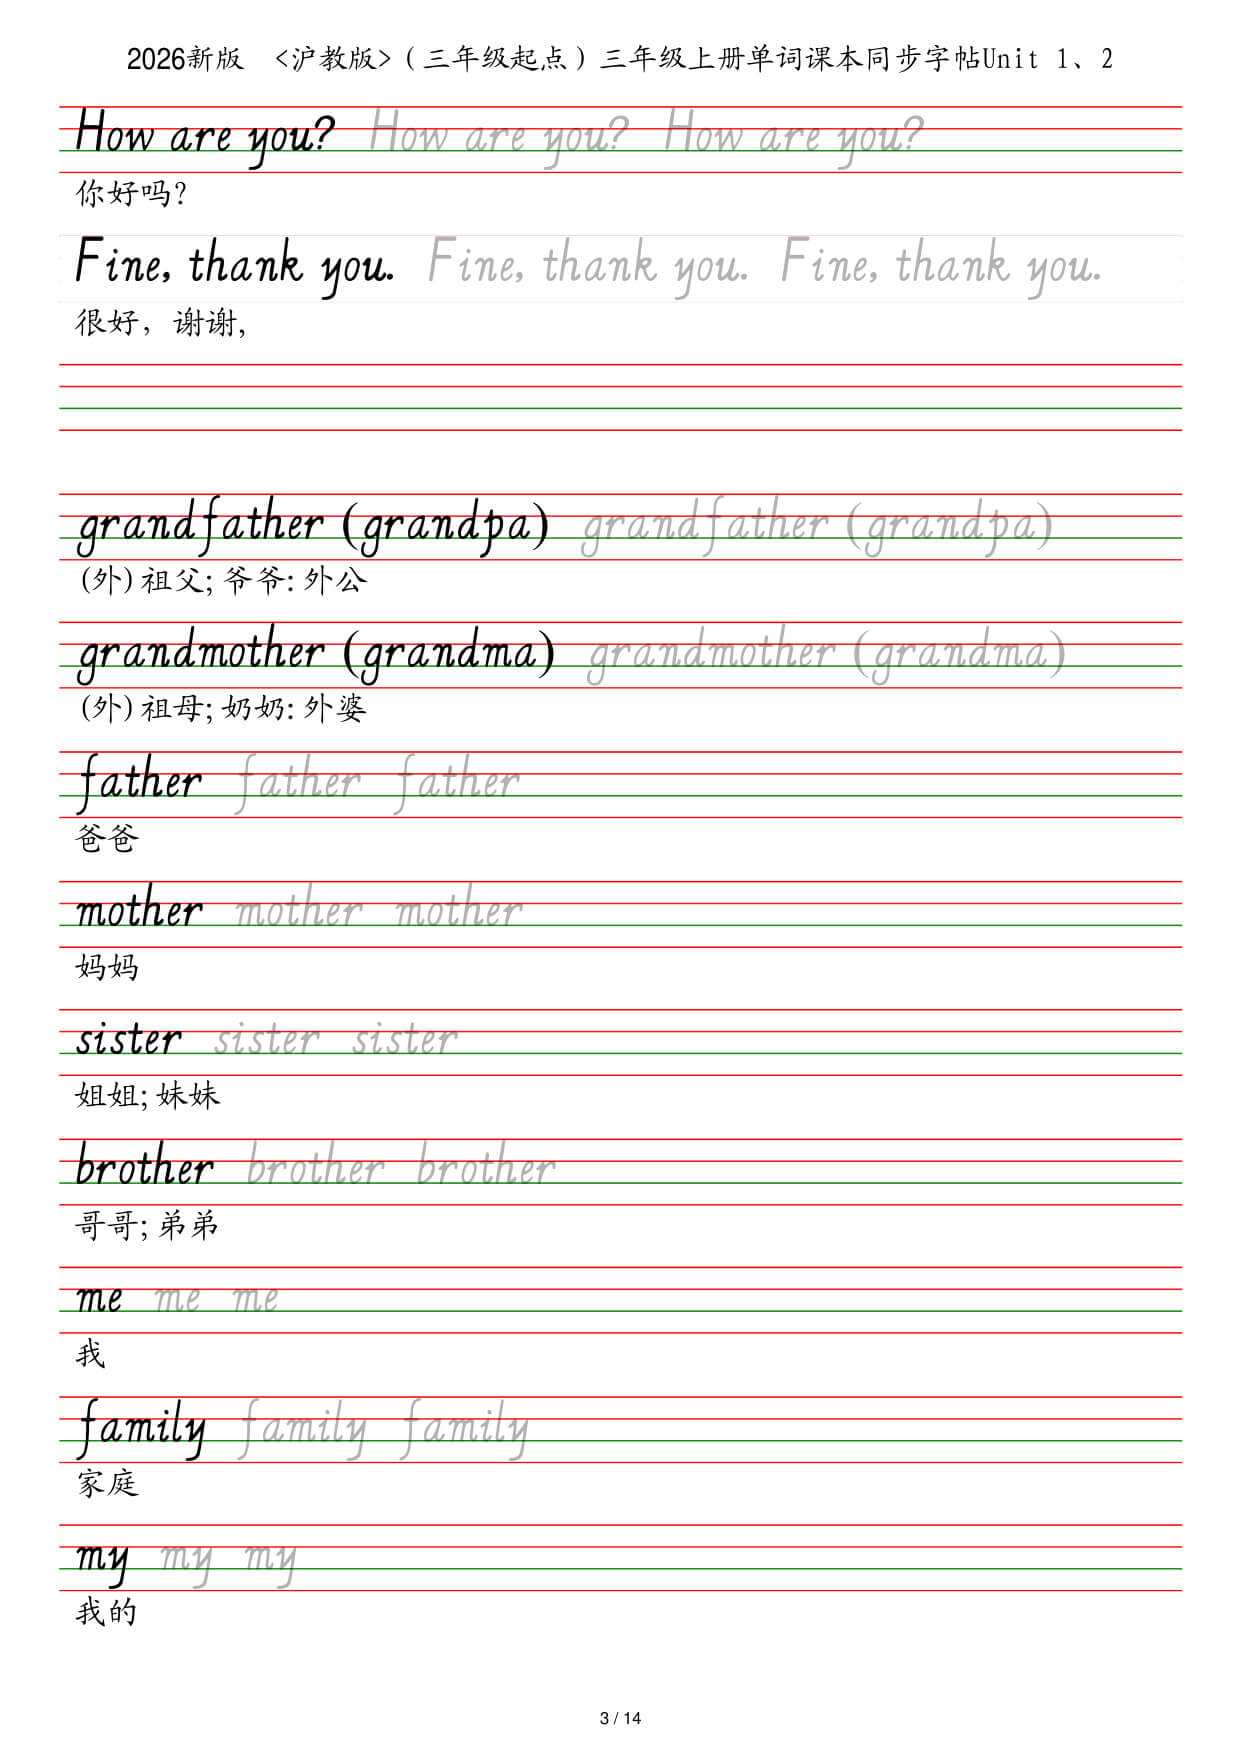 2026新版 <沪教版>（三年级起点）三年级上册单词课本同步字帖Unit 1、2
How are you? How are you? How are you?
你好吗?
Fine, thank you. Fine, thank you. Fine, thank you.
很好，谢谢,
grandfather (grandpa) grandfather (grandpa)
(外)祖父; 爷爷: 外公
grandmother (grandma) grandmother (grandma)
(外)祖母; 奶奶: 外婆
father father father
爸爸
mother mother mother
妈妈
sister sister sister
姐姐; 妹妹
brother brother brother
哥哥; 弟弟
me me me
我
family family family
家庭
my my my
我的
3 / 14